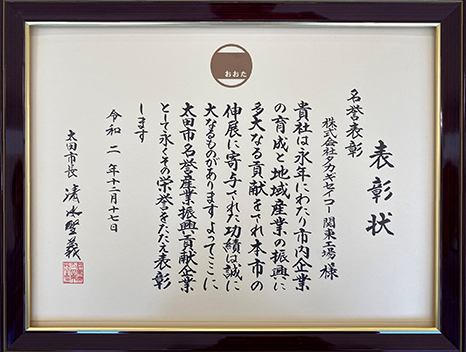 おおた
表彰状
名誉表彰
株式会社タカギセイコー 関東工場 様
貴社は永年にわたり市内企業
の育成と地域産業の振興に
多大なる貢献をされ本市の
伸展に寄与された功績は誠に
大なるものがありますよってここに
太田市名誉産業振興貢献企業
として永くその栄誉をたたえ表彰
します
令和二年十二月十七日
太田市長 清水聖義